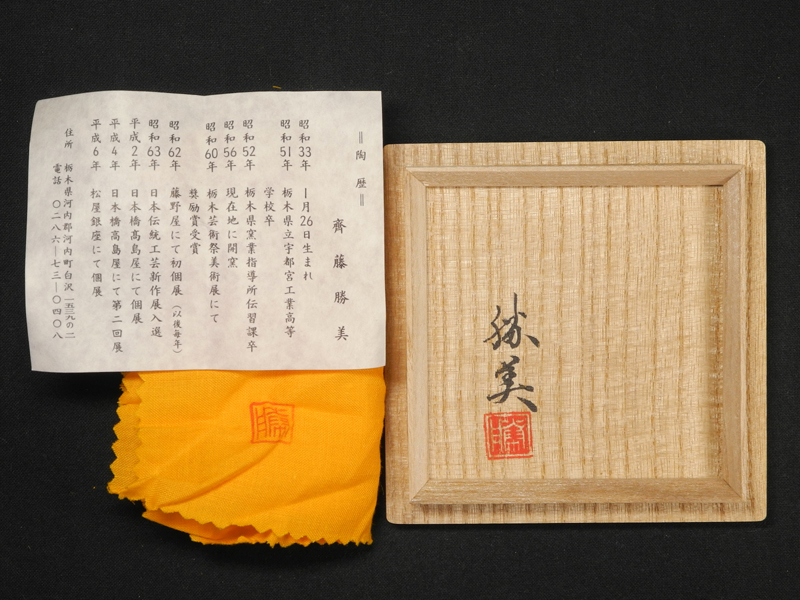 ＝陶歴＝
齊藤勝美
昭和33年 1月26日生まれ
昭和51年 栃木県立宇都宮工業高等
学校卒
昭和52年 栃木県窯業指導所伝習課卒
昭和56年 現在地に開窯
昭和60年 栃木芸術祭美術展にて
奨励賞受賞
昭和62年 藤野屋にて初個展（以後毎年）
昭和63年 日本伝統工芸新作展入選
平成2年 日本橋高島屋にて個展
平成4年 日本橋高島屋にて第二回展
平成6年 松屋銀座にて個展
住所 栃木県河内郡河内町白沢一五三九の二
電話 〇二八六―七三―〇四〇八
勝美
勝
勝